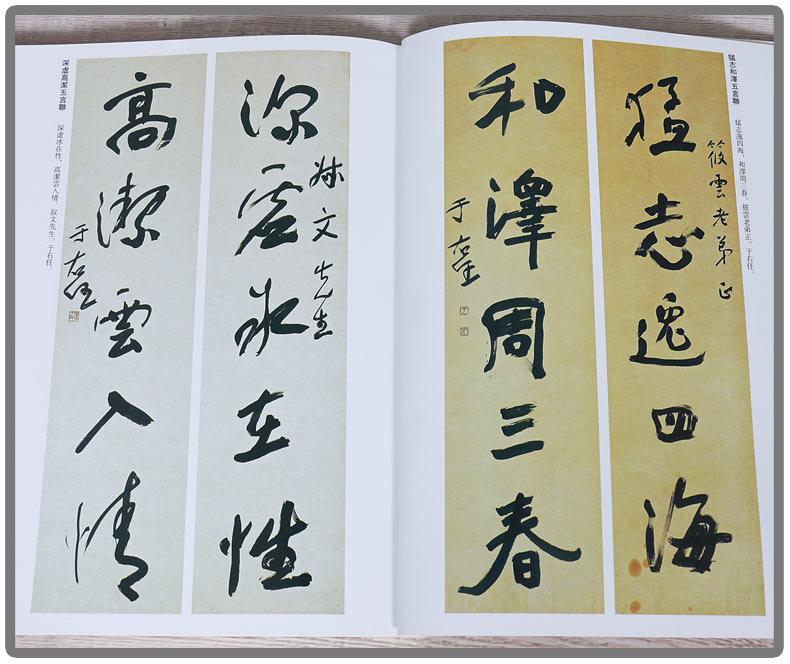 猛志和澤五言聯
猛志逸四海，和澤周三春。筱雲老弟正。于右任。
筱雲老弟正
猛志逸四海
和澤周三春
于右任
叔文先生
深虛冰在性
高潔雲入情
于右任
深虛高潔五言聯
深虛冰在性，高潔雲入情。叔文先生。于右任。